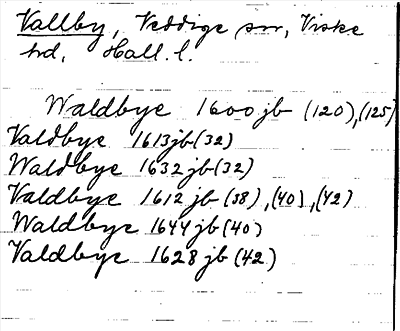 Vallby, Veddige sn, Viske
hd, Hall. l.
Waldbye 1600 jb (120), (125)
Valdbye 1613 jb (32)
Waldbye 1632 jb (32)
Valdbye 1612 jb (38), (40), (42)
Waldbye 1644 jb (40)
Valdbye 1628 jb (42)